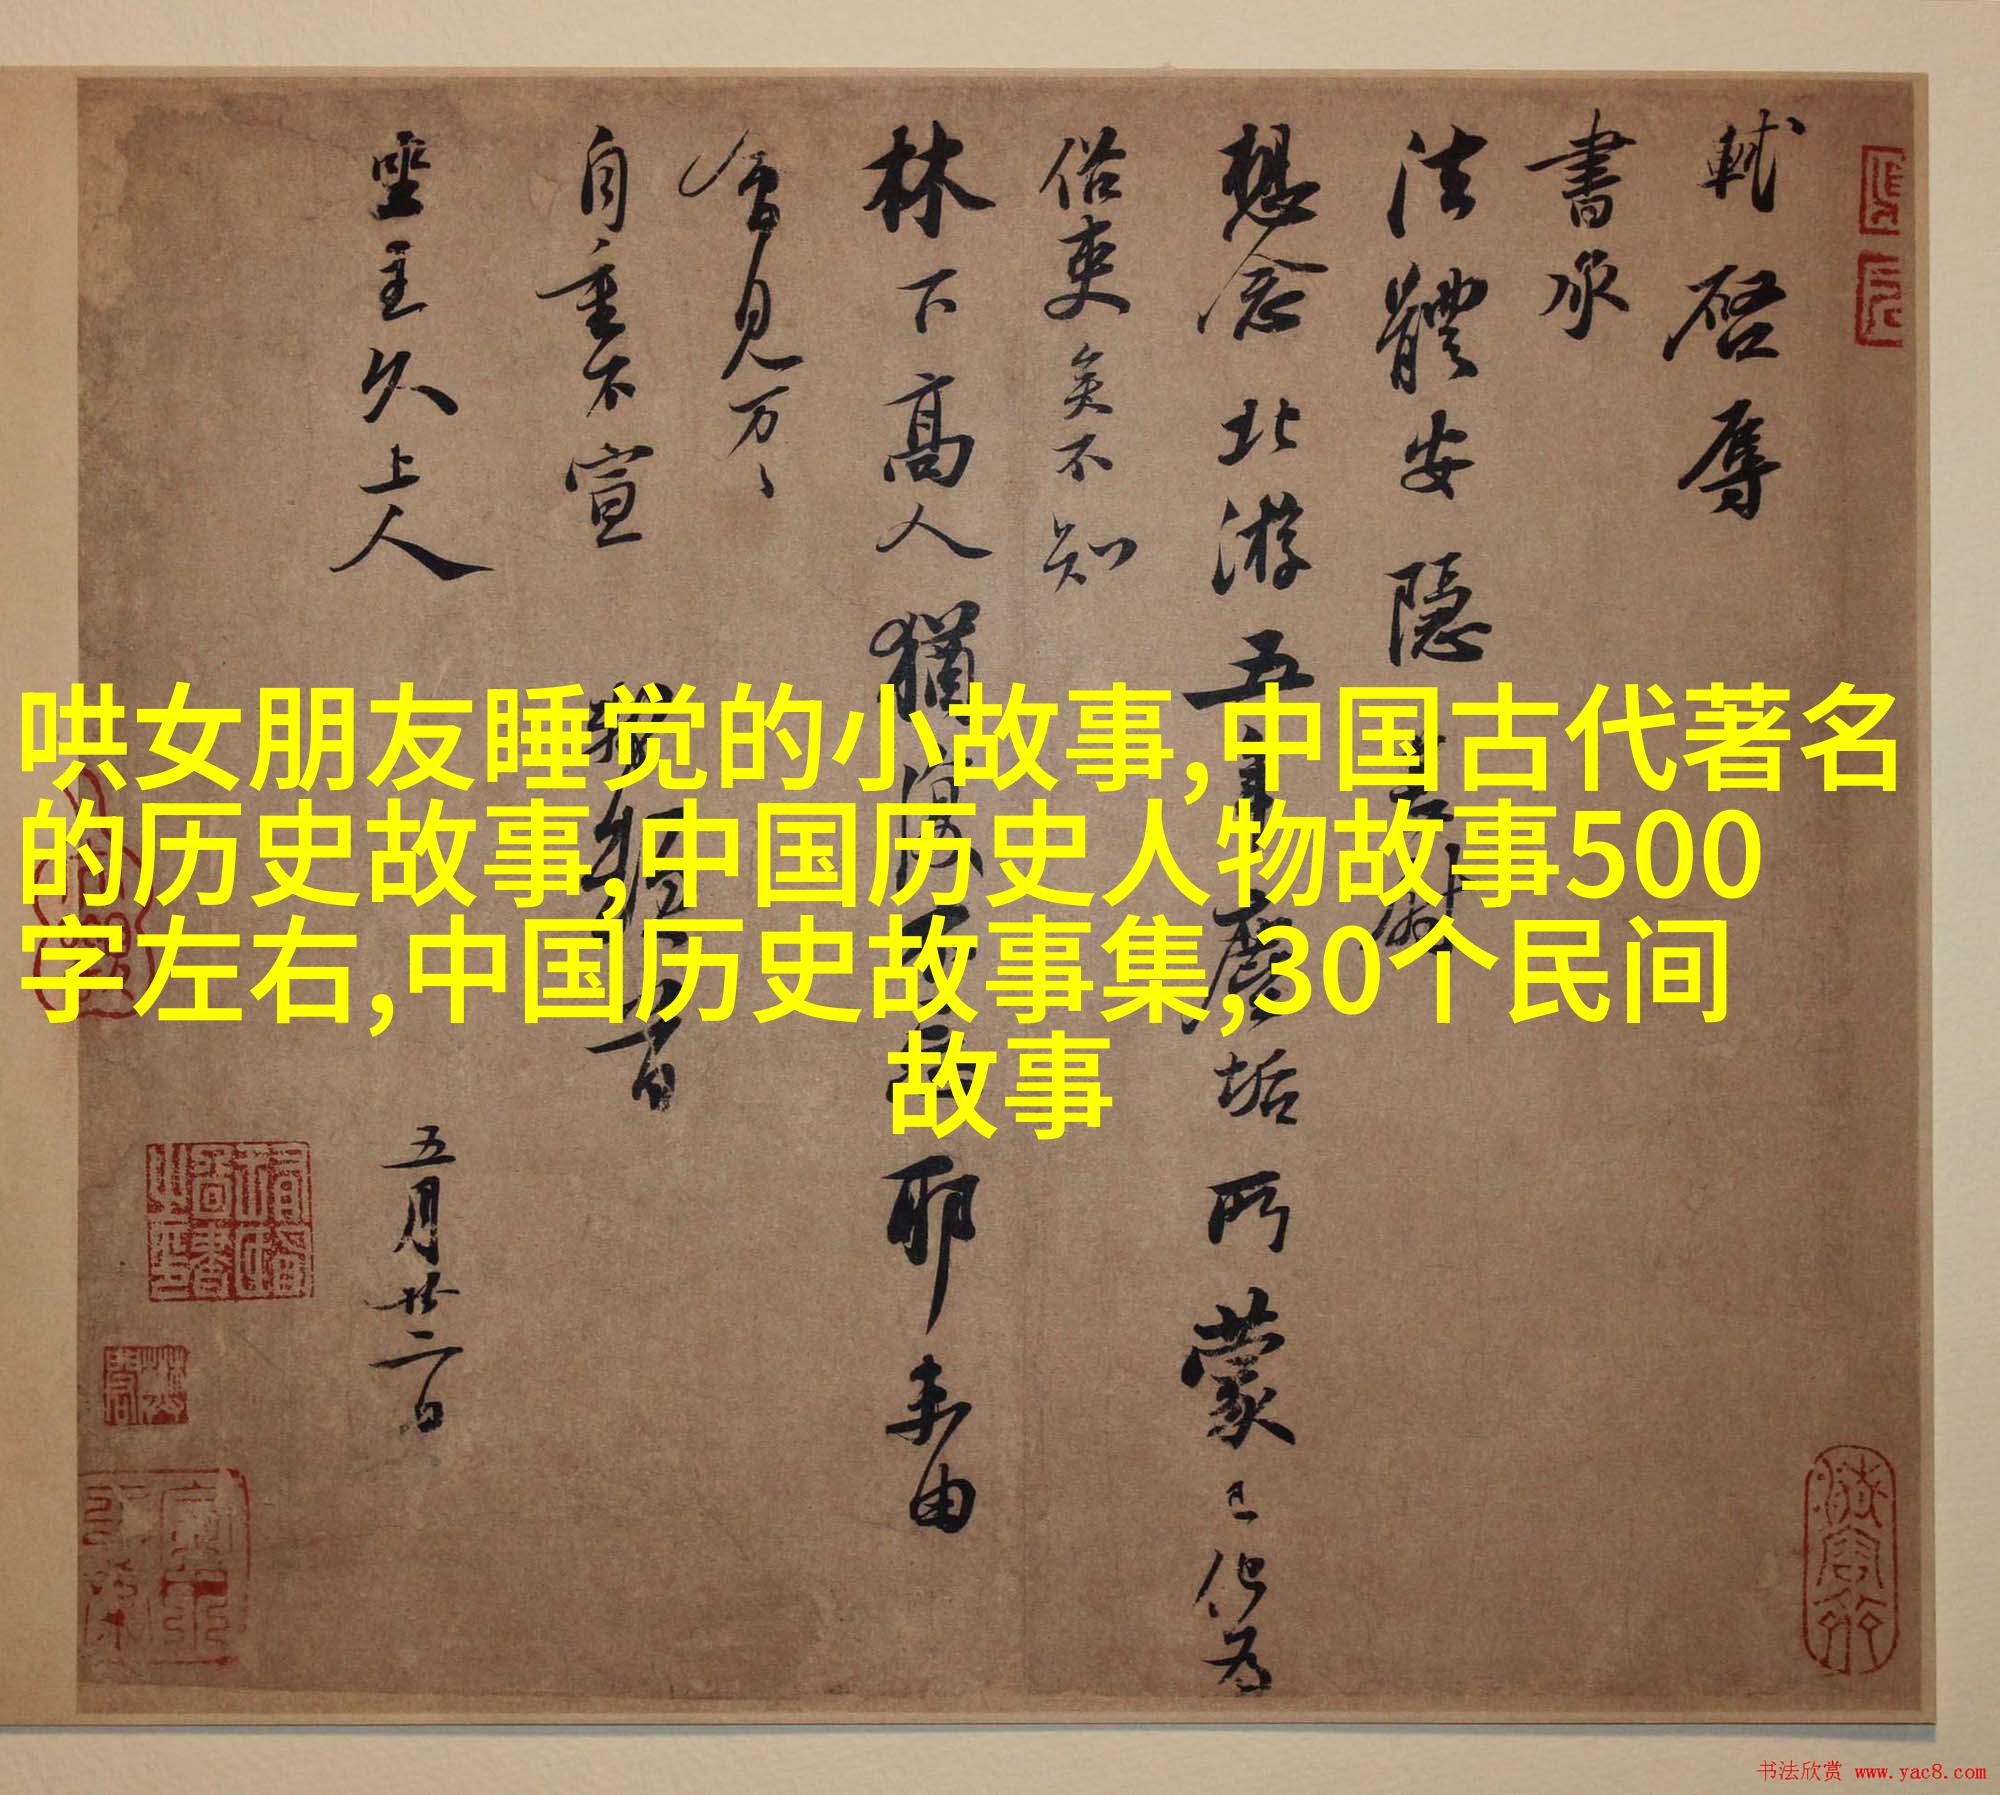 哄女朋友睡觉的小故事,中国古代著名
的历史故事,中国历史人物故事500
字左右,中国历史故事集,30个民间
故事
軾啓辱
書承
法體安隱
想念北游五年塵垢所蒙已化為
俗吏矣不知
林下高人猶復不忘耶未由
會見万万
自重不宣 軾頓首
坐主久上人
五月廿二日
书法欣赏 www.yac8.com